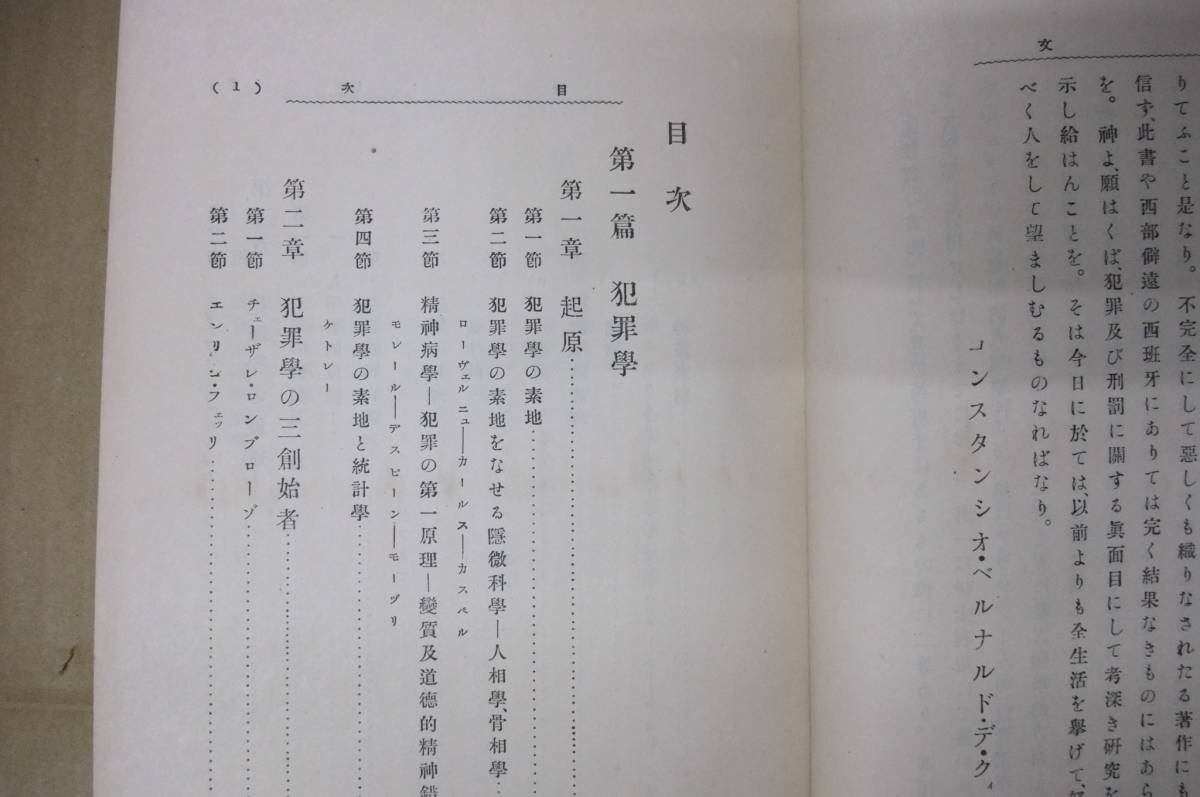 文
りてふこと是なり。不完全にして惡しくも織りなされたる著作にも
信ず、此書や西部僻遠の西班牙にありては完く結果なきものにはあら
を。神よ、願はくば、犯罪及び刑罰に關する眞面目にして考深き硏究を
示し給はんことを。そは今日に於ては、以前よりも全生活を擧げて、
べく人をして望ましむるものなればなり。
コンスタンシオ・ベルナルド・デ・クィ
目次 (1)
目次
第一篇 犯罪學
第一章 起原
第一節 犯罪學の素地
第二節 犯罪學の素地をなせる隱微科學―人相學、骨相學
ローヴェルニュ――カールス――カスペル
第三節 精神病學―犯罪の第一原理―變質及道德的精神錯
モレール――デスピーン――モーヅリ
第四節 犯罪學の素地と統計學
ケトレー
第二章 犯罪學の三創始者
第一節 チェーザレ・ロンブローゾ
第二節 エンリコ・フェッリ